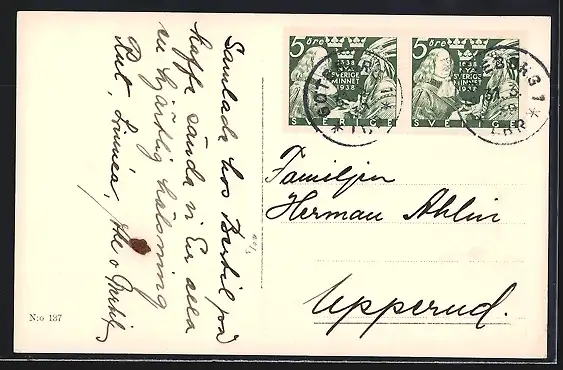 Samlade hos Bertil på
kaffe sända vi Er alla
en hjärtlig hälsning
Rut, Linnéa,
N:o 137
5 ÖRE
1638
NYA
SVERIGE
MINNET
1938
SVERIGE
5 ÖRE
SVERIGE
MINNET
1938
SVERIGE
Familjen
Herman Ahlin
Upperud.